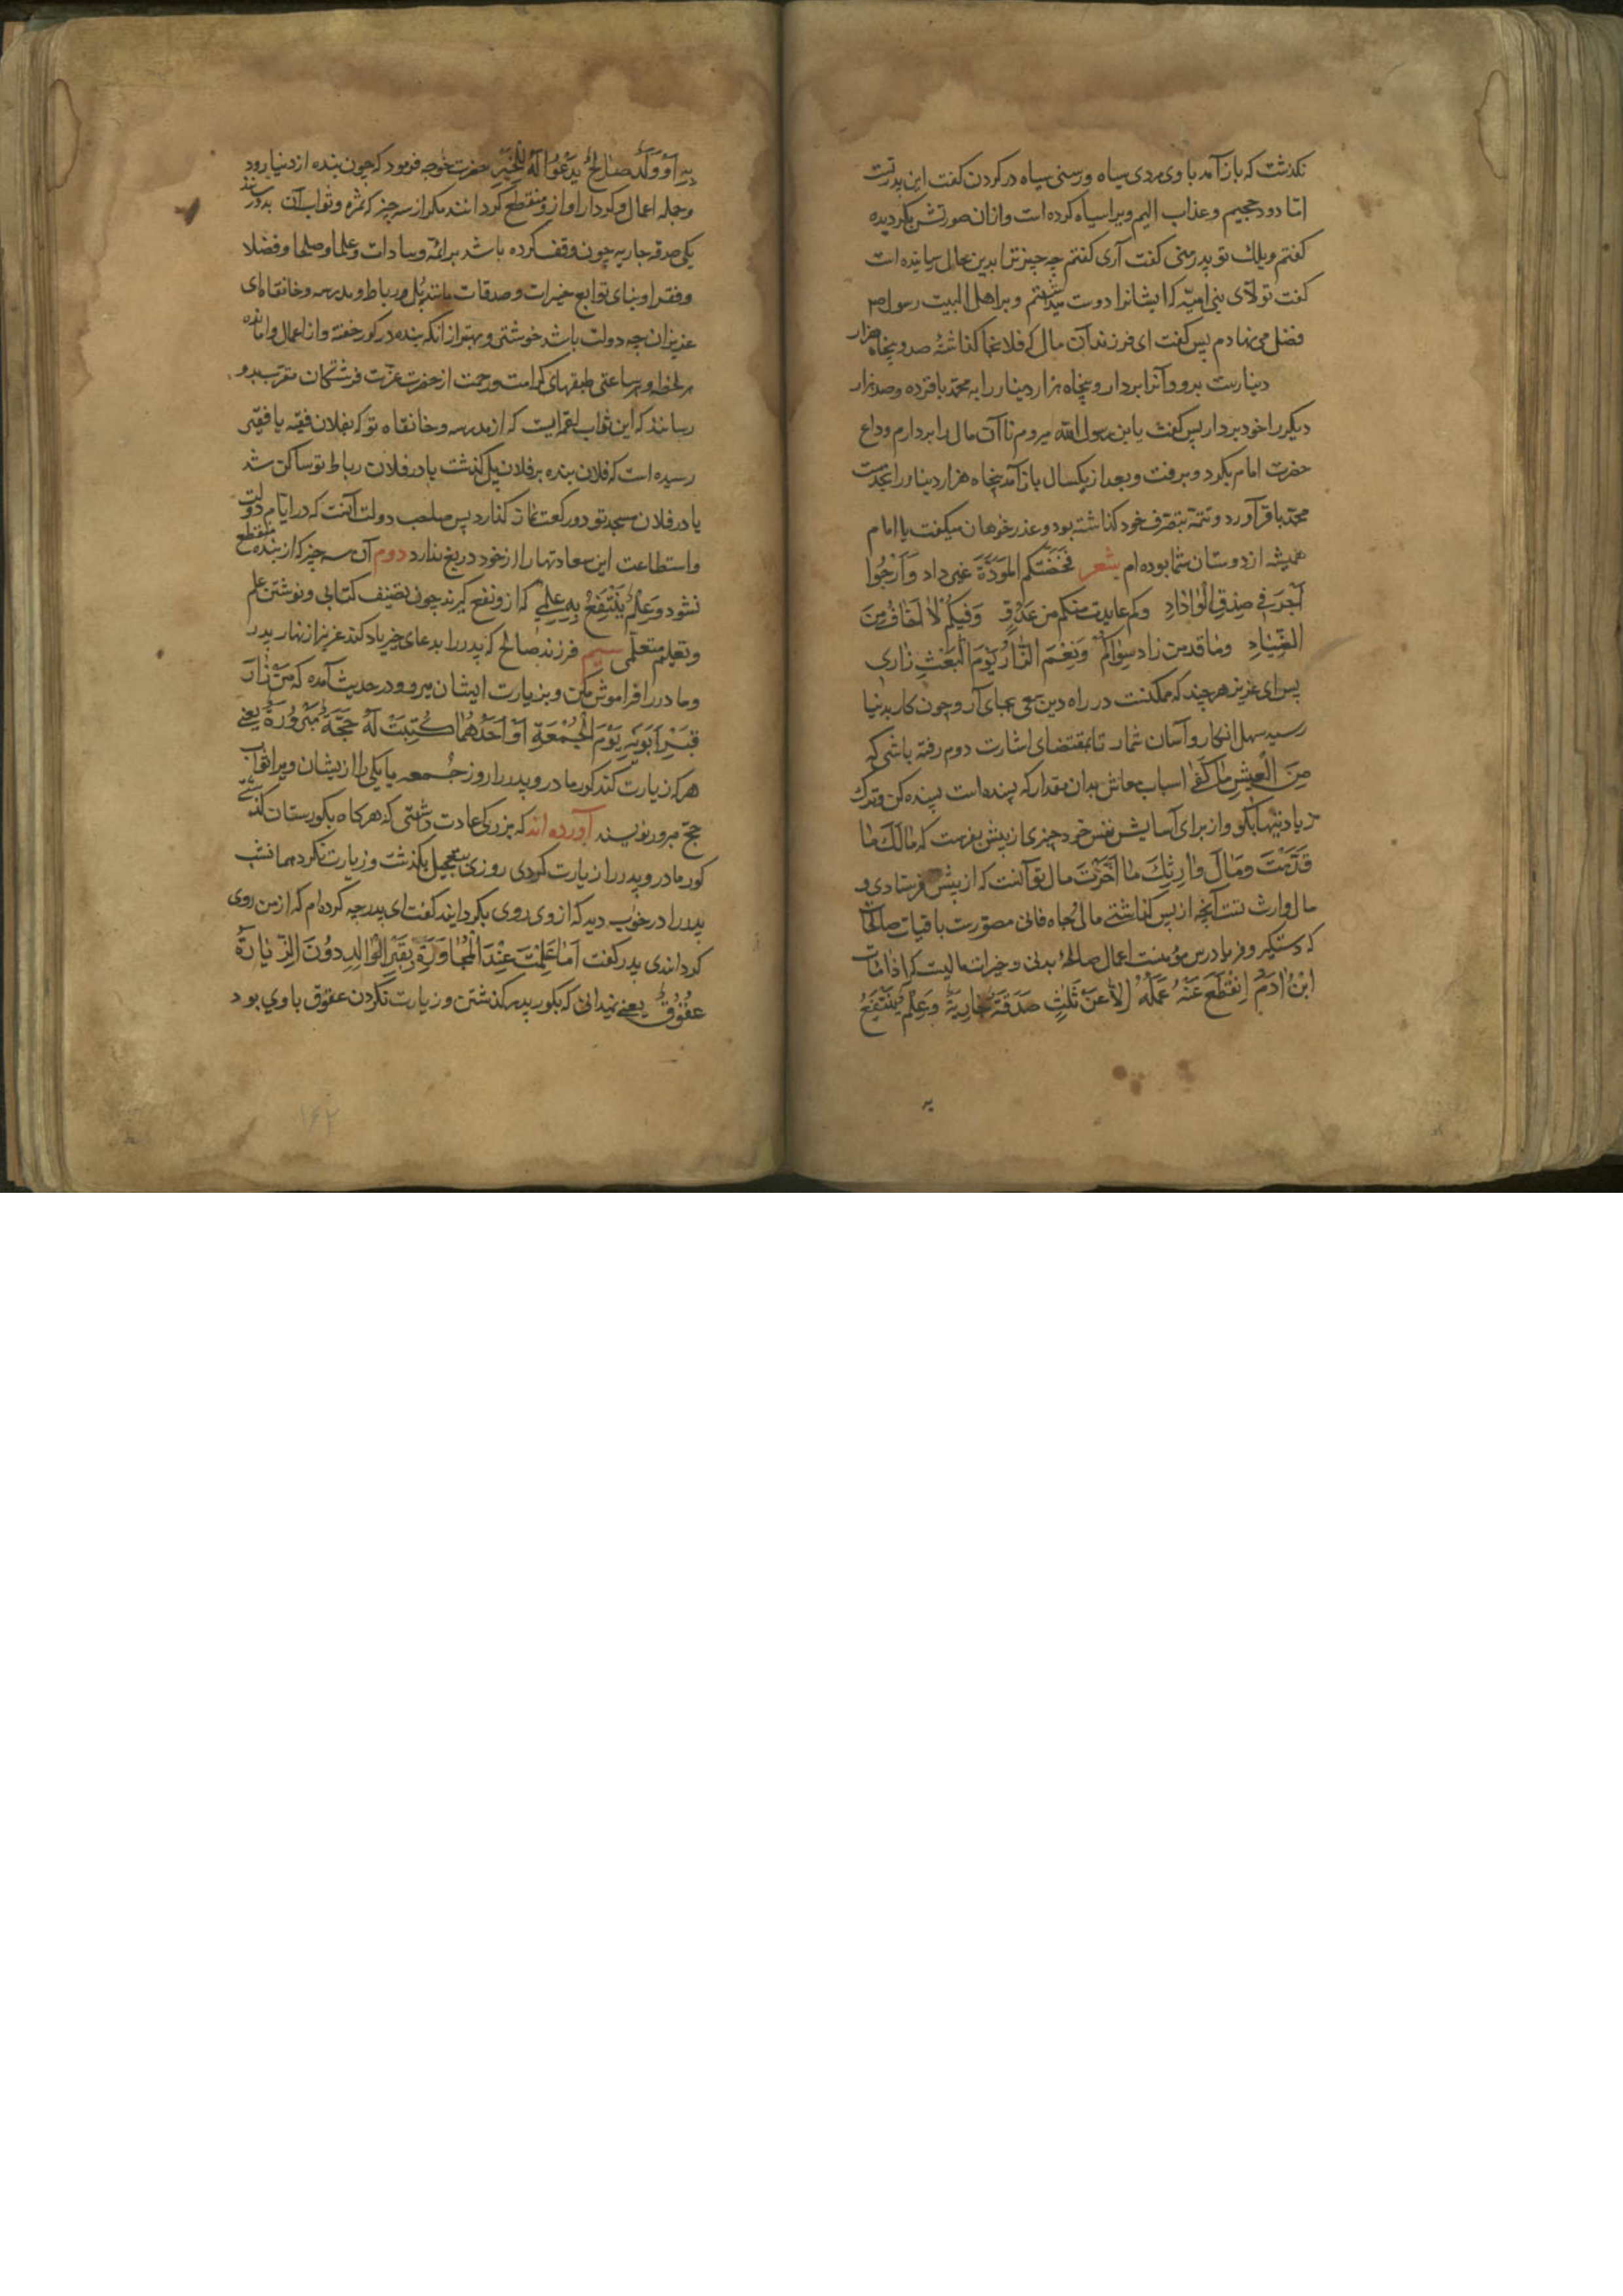 نکذشت که باز آمد با وی مردی سیاه ورسنی سیاه در کردن کفت این بدرتست
امّا دود جحیم وعذاب الیم ویرا سیاه کرده است وازان صورتش بکردیده
کفتم ویلك تو پدر منی کفت آری کفتم چه چیز ترا بدین حال رسانیده است
کفت تولّای بنی امیّه که ایشانرا دوست میداشتم وبر اهل البیت رسول ص
فضل می نهادم پس کفت ای فرزند آن مال که فلانجا کذاشته‌ام صد وپنجاه هزار
دینارست برو وآنرا بردار وپنجاه هزار دینار را به محمّد باقر ده وصد هزار
دیکر را خود بردار پس کفت یابن رسول اللّه میروم تا آن مال را بردارم وداع
حضرت امام بکرد وبرفت وبعد از یکسال باز آمد پنجاه هزار دینار را بخدمت
محمّد باقر آورد وتتمّه بتصرّف خود کذاشته بود وعذر خواهان میکفت یا امام
همیشه از دوستان شما بوده‌ام شعر فمحّضتکم المَوَدَّةَ غیر داد وَاَرْجُوا
اَجْرَ فی صِدْقِ الْوَادِ وکم عادیت منکم من عَدُوٍّ وَفِیکُمْ لَا اَخَافُ مِنَ
وما قدمت زاد سواکم وَنِعْمَ الزَّادُ یَوْمَ الْبَعْثِ زادی
پس ای عزیز هر چند که ممکنست در راه دین سعی بجای آر وچون کار بدنیا
رسید سهل انکار وآسان شمار تا بمقتضای اشارت دوم رفته باشی که
مِنَ الْعَیْشِ مَا کَفَی اسباب معاش بدان مقدار که بسنده است بسنده کن وترك
زیادتیها بکو واز برای آسایش نفس خود چیزی از پیش بفرست که مَالَكَ مَا
قَدَّمْتَ وَمَالَ وَارِثِكَ مَا اَخَّرْتَ مال تو آنست که از پیش فرستادی و
مال وارث تست آنچه از پس کذاشتی مال وجاه فانی مصوّرست باقیات صالحات
که دستکیر وفریادرس مؤمنست اعمال صالحهٔ بدنی وخیرات مالیست که اِذَا مَاتَ
ابْنُ اٰدَمَ اِنْقَطَعَ عَنْهُ عَمَلُهُ اِلَّا عَنْ ثَلَثٍ صَدَقَةٌ جَارِیَةٌ وَعِلْمٌ یُنْتَفَعُ
به
بِهِ اَوْ وَلَدٌ صَالِحٌ یَدْعُوا لَهُ بِالْخَیْرِ حضرت خواجه فرمود که چون بنده از دنیا برود
وجمله اعمال وکردار او ازو منقطع کردانند مکر از سه چیز که ثمره وثواب آن بدو رسانند
یکی صدقهٔ جاریه چون وقف کرده باشد بر ائمّه وسادات وعلما وصلحا وفضلا
وفقرا وبنای توابع خیرات وصدقات مانند پُل ورباط ومدرسه وخانقاه ای
عزیزان چه دولت باشد خوشتر وبهتر از آنکه بنده در کور خفته واز اعمال وامانده
هر لحظه وهر ساعتی طبقهای کرامت ورحمت از حضرت عزّت فرشتکان مقرّب بدو
رسانند که این ثواب لقمه‌ایست که از مدرسه وخانقاه تو که بفلان فقیه یا فقیر
رسیده است که فلان بنده بر فلان پل کذشت یا در فلان رباط تو ساکن شد
یا در فلان مسجد تو دو رکعت نماز کذارد پس صاحب دولت آنست که در ایّام دولت
واستطاعت این سعادتها را از خود دریغ ندارد دوم آن سه چیز که از بنده منقطع
نشود وَعِلْمٌ یُنْتَفَعُ بِهِ علمی که ازو نفع کیرند چون تصنیف کتابی ونوشتن علم
وتعلیم متعلّمی سیم فرزند صالح که پدر را بدعای خیر یاد کند عزیز از نهار پدر
ومادر را فراموش مکن وبزیارت ایشان میرو ودر حدیث آمده که مَنْ زَارَ
قَبْرَ اَبَوَیْهِ یَوْمَ الْجُمُعَةِ اَوْ اَحَدَهُمَا کُتِبَتْ لَهُ حَجَّةٌ مَبْرُورَةٌ یعنی
هر که زیارت کند کور مادر وپدر را روز جمعه یا یکی را از ایشان ویرا ثواب
حجّ مبرور نویسند آورده‌اند که بزرکی عادت داشتی که هر کاه بکورستان کذشتی
کور مادر وپدر را زیارت کردی روزی بتعجیل بکذشت وزیارت نکرد همان شب
پدر را در خواب دید که از وی روی بکردانید کفت ای پدر چه کرده‌ام که از من روی
کردانیدی پدر کفت اَمَا عَلِمْتَ عِنْدَ الْمُجَاوَزَةِ بِقَبْرِ الْوَالِدِ دُونَ الزِّیَارَةِ
عُقُوقٌ یعنی نمیدانی که بکور پدر کذشتن وزیارت نکردن عقوق با وی بود
۱۶۲